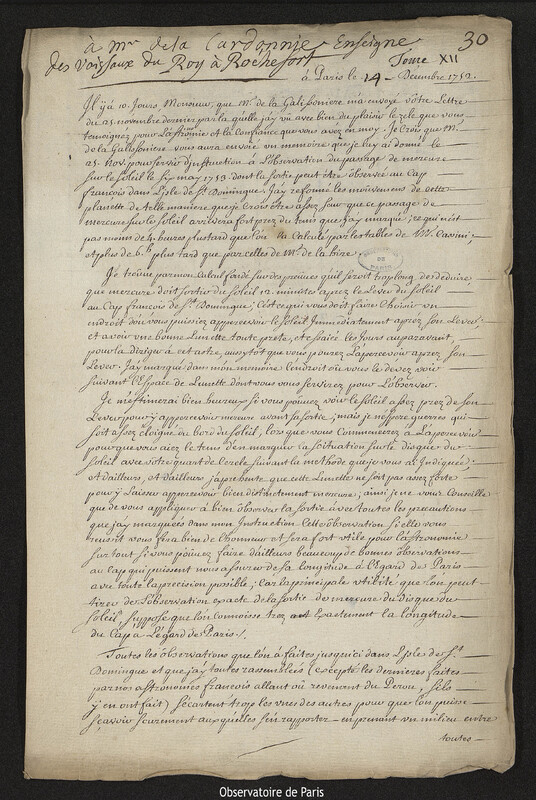 à mr de la Cardonnie Enseigne
des Vaissaux du Roy à Rochefort
30
Tome XII
à Paris le 14 Decembre 1752.
Il y a 10. Jours, Monsieur, que Mr. de la Galissonniere m'a envoyé votre Lettre
du 25 novembre dernier par la quelle j'ay vû avec bien du plaisir le zele que vous
temoignez pour L'astronomie et la confiance que vous avez en moy. Je Crois que M.
de la Gallissonniere vous aura envoié un memoire que je luy ai donné le
25. Nov. pour servir d'instruction à L'observation du passage de mercure
sur le Soleil le six may 1753. dont la sortie peut être observée au Cap
françois dans L'isle de St. Domingue. J'ay reformé les mouvemens de cette
planette de telle maniere que je Crois être assez seur que ce passage de
mercure sur le Soleil arrivera fort prez du tems que j'ay marqué; ce qui n'est
pas moins de 4 heures plus tard que l'on l'a Calculé par les tables de M. Cassini;
et plus de 6.h plus tard que par celles de Mr. de la hire.
Je trouve par mon Calcul fondé sur des preuves qu'il seroit trop long de deduire
que mercure doit sortir du Soleil 12 minutes aprez le Lever du Soleil
au Cap françois de St. Domingue; c'est ce qui vous doit faire choisir un
endroit d'où vous puissiez appercevoir le Soleil Immediatement aprez son Lever;
et avoir une bonne Lunette toute prete, et essaiée les Jours auparavant,
pour la diriger à cet astre, aussytôt que vous pourez L'apercevoir aprez son
Lever. J'ay marqué dans mon memoire l'endroit où vous le devez voir
suivant L'Espece de Lunette dont vous vous servirez pour L'observer.
Je m'estimerai bien heureux si vous pouvez voir le Soleil assez prez de son
Lever pour y appercevoir mercure avant sa sortie; mais je n'espere guerres qu'il
soit assez éloigné du bord du Soleil, lors que vous commencerez à L'apercevoir
pour que vous aiez le tems d'en marquer sa situation sur le disque du
Soleil avec votre quart de Cercle suivant la methode que je vous ai Indiquée;
et d'ailleurs, et d'ailleurs j'apprehente que cette Lunette ne soit pas assez forte
pour y laisser appercevoir bien distinctement mercure; ainsi je ne vous Conseille
que de vous appliquer à bien observer la sortie avec toutes les precautions
que j'ay marquées dans mon Instruction. Cette observation si elle vous
reussit vous fera bien de L'honneur et sera fort utile pour L'astronomie
sur tout si vous pouvez faire d'ailleurs beaucoup de bonnes observations
au cap qui puissent nous assurer de sa longitude à L'égard de Paris
avec toute la precision possible; car la principale utilité que l'on peut
tirer de L'observation exacte de la sortie de mercure du disque du
Soleil, suppose que l'on connoisse trez exactement la longitude
du Cap à L'égard de Paris.
Toutes les observations que l'on a faites jusqu'ici dans L'isle de St.
Domingue et que j'ay toutes rassemblées (excepté les dernieres faites
par nos astronomes francois allant où revenant du Perou, s'ils
y en ont fait) s'écartent trop les unes des autres pour que l'on puisse
sçavoir seurement auxquelles s'en rapporter en prenant un milieu entre
toutes
Observatoire de Paris